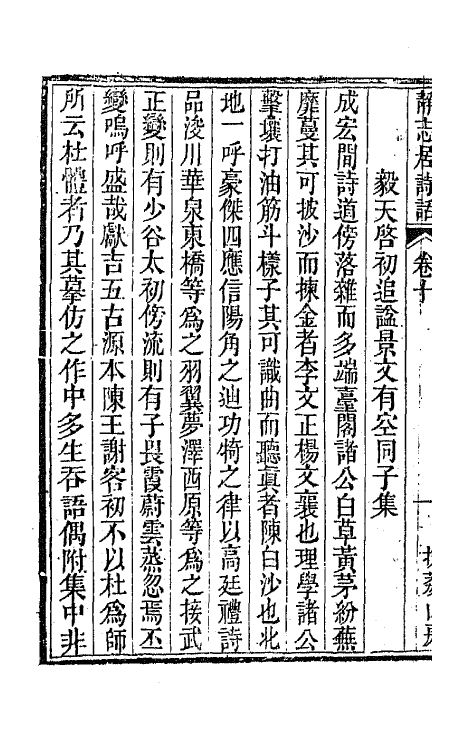 靜志居詩話 卷十 一
毅天啓初追諡景文有空同子集
成宏間詩道傍落雜而多端臺閣諸公白草黃茅紛蕪
靡蔓其可披沙而揀金者李文正楊文襄也理學諸公
擊壤打油筋斗樣子其可識曲而聽眞者陳白沙也北
地一呼豪傑四應信陽角之迪功犄之律以高廷禮詩
品浚川華泉東橋等爲之羽翼夢澤西原等爲之接武
正變則有少谷太初傍流則有子畏霞蔚雲蒸忽焉丕
變嗚呼盛哉獻吉五古源本陳王謝客初不以杜爲師
所云杜體者乃其摹仿之作中多生吞語偶附集中非